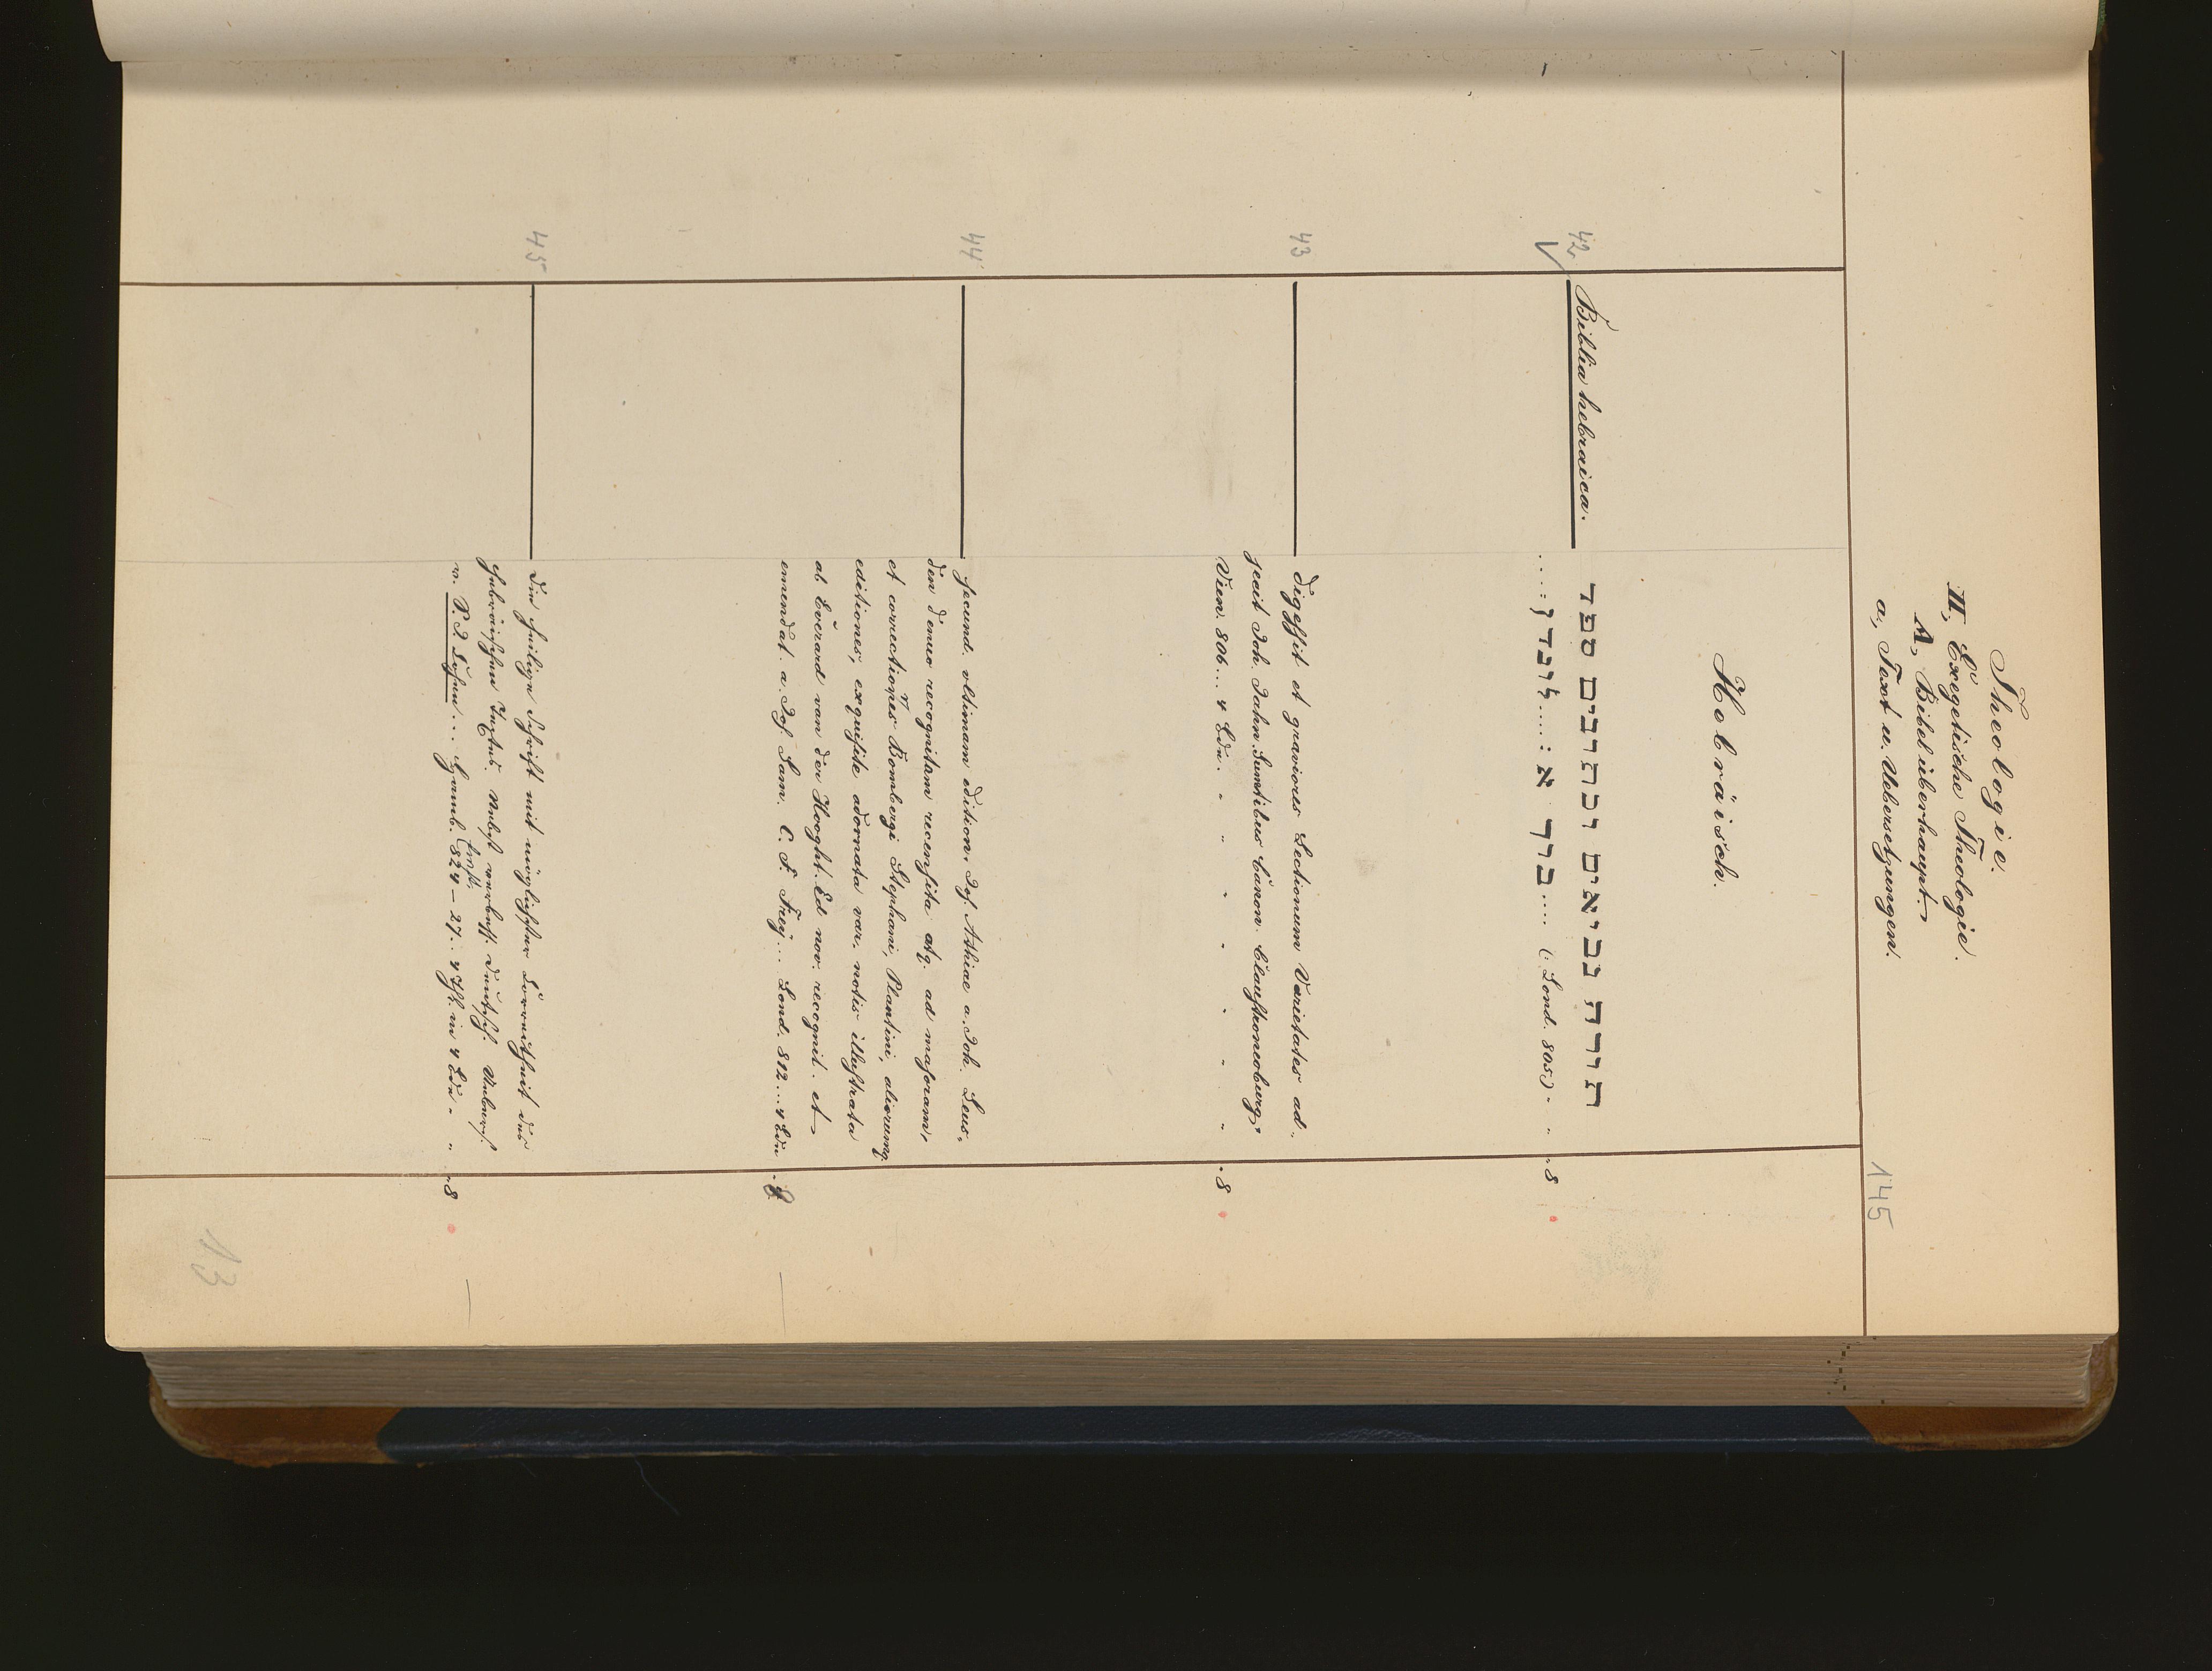 Theologie.
II, Exegetische Theologie.
A, Bibel überhaupt.
a, Text u. Uebersetzungen.
145
Hebräisch.
42 Biblia hebraica. תורה נביאים וכתובים ספר
....: לונדון ....: א ברך .... (: Lond. 805.) " " 8
43 digessit et graviores Lectionum Varietates ad-
jecit Joh. Jahn. Sumtibus Canon. Claustroneoburg.
Vien. 806... 4 Bde. " " " " " " " 8
44 secund. ultimam edition. Jos. Athiae a. Joh. Leus-
den denuo recognitam recensita atq. ad masoram,
et correctiones Bombergi Stephani, Plantini, aliorumq.
editiones, exquisite adornata var. notis illustrata
ab Everard van der Hooght. Ed nov. recognit. et
emendat. a. Jos. Sam. C. F. Frey... Lond. 812... 4 Bde " 8.
45 die heilige Schrift mit möglichster Correctheit des
hebräischen Textes. Nebst verbess. deutsch. Uebers.
v. S. J. Cohen... Hamb. 824 – 27. 4 Thl. in 4 Bde. " " 8
13